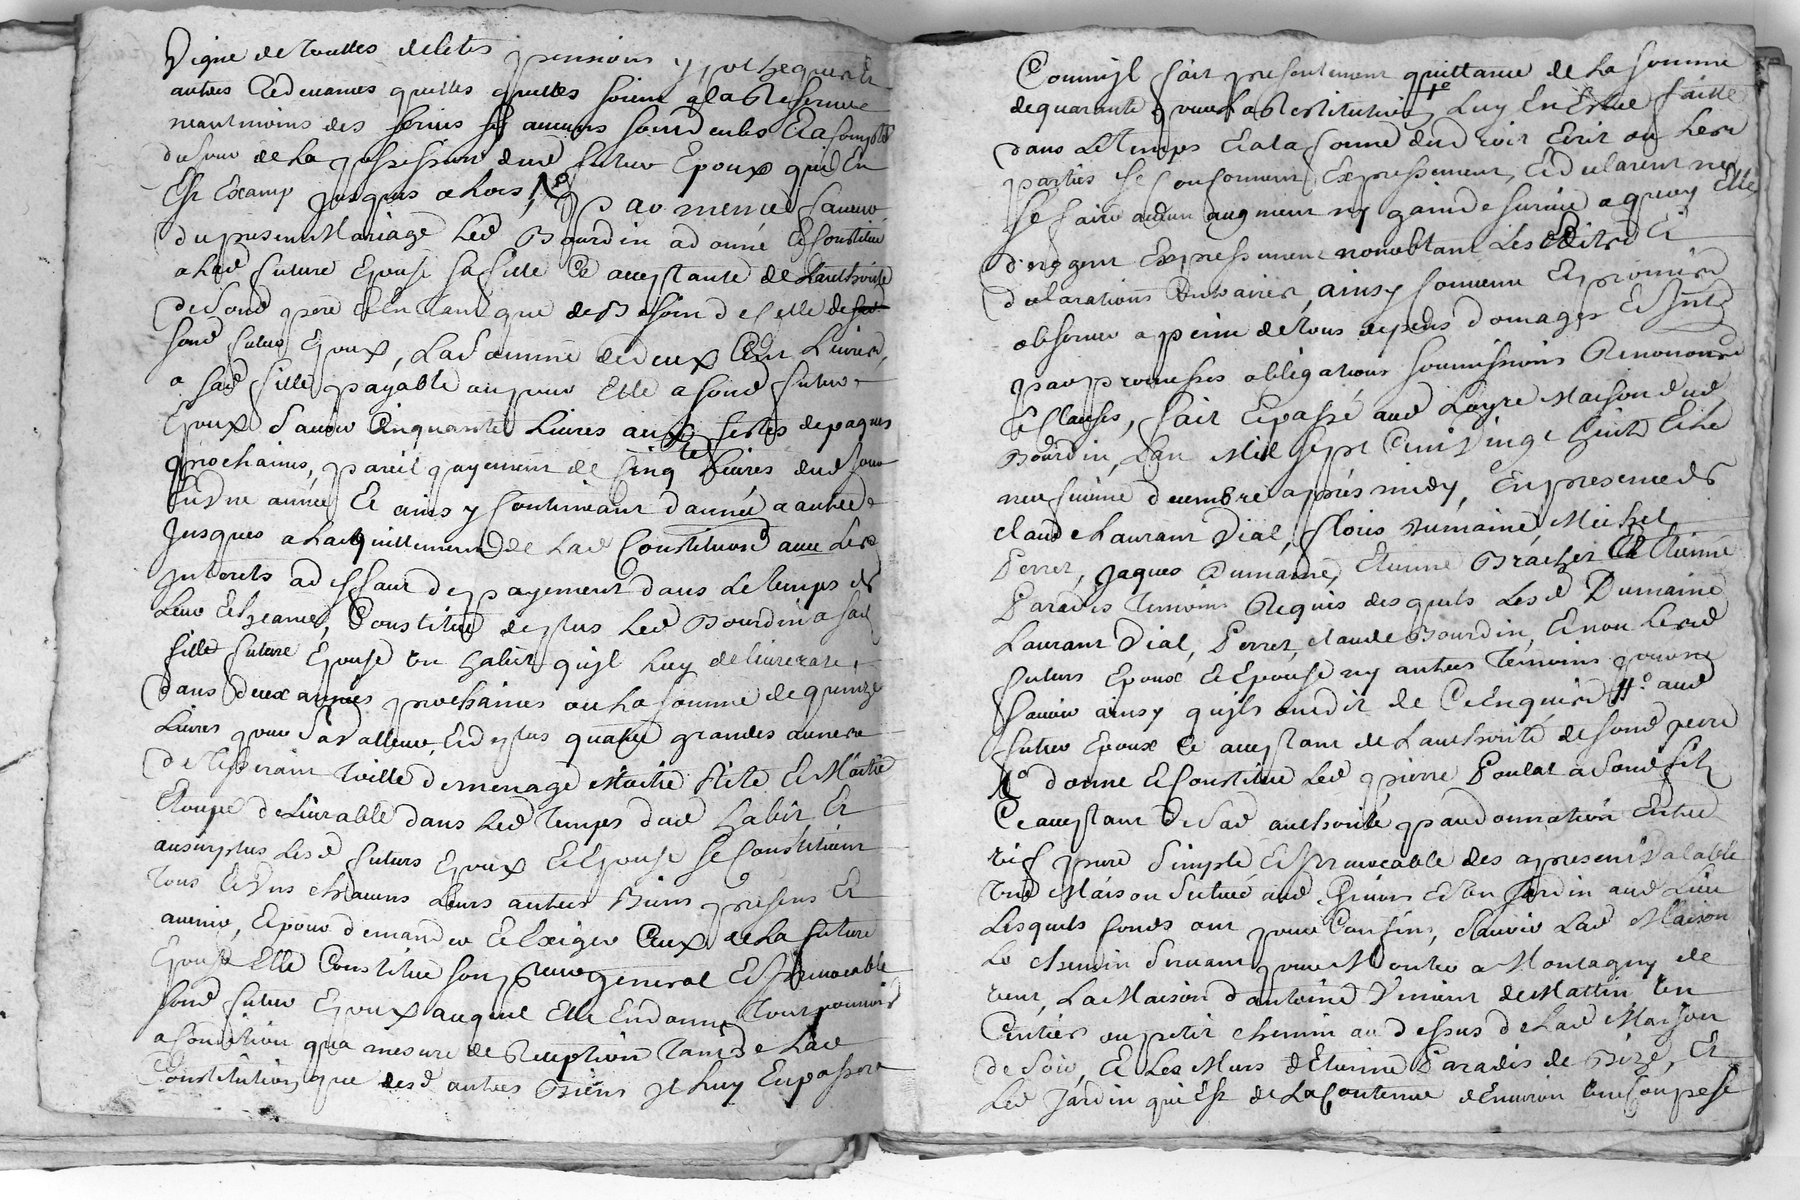 Vigne de touttes debtes pensions ypotheques et
autres Redevances quittes quelles soient a la Reserve
neantmoins des servis sy aucuns sont deubs Et a compter
du jour de la possession dud futur Epoux quil En
Est Examp jusques alors, par meme faveur
du presen Mariage Led Bourdin a donné Et Constitue
a Lad future Epouse sa fille Ce acceptante de Lauthorité
de sond pere Et En tant que de Besoin de celle de
sond futur Epoux, La somme de deux Cent Livres,
a sad fille payable ou pour Elle a sond futur
Epoux Scavoir Cinquante Livres aux festes de paques
prochaines, pareil payement de Cinq te Livres dud jour
En Une année Et ainsy Continuant d'année a autre
Jusques a Lacquittement de Lad Constitution avec Les
Interets a deffaut de payement dans Le temps de
Leur Echeance, Constitue de plus Led Bourdin a sad
fille future Epouse un habit quil Luy delivrera
dans deux années prochaines ou La somme de quinze
Livres pour sa valleur, Et de plus quatre grandes aunes
de toille de menage Moitié Rite Et Moitié
Etoupe delivrable dans Led temps dud habit Et
au surplus Lesd futurs Epoux Et Epouse se Constituent
tous Et Uns chacuns Leurs autres Biens presens Et
avenir, Et pour demander Et Exiger Ceux de La future
Epouse Elle Constitue son procureur general Et Irrevocable
sond futur Epoux auquel Elle En donne tout pouvoir
a Condition qua mesure de Reception tant de Lad
Constitution que desd autres Biens Il Luy En passera
Comme il fait presentement quittance de La somme
de quarante pour La Restitution Luy En Estre faitte
dans Le temps Et a la forme du droit Ecrit ou Lesd
parties se Conforment Expressement, Et declarent ne
se faire aucun augment ny gain de survie a quoy Elles
derogent Expressement nonobtant Les Edits Et
declarations Contraires, ainsy Convenu Et promis
observer a peine de tous depens domages Et Intz
par promesses obligations soumissions Renonces
Et Clauses, fait Et passé aud Loyre Maison dud
Bourdin, Lan Mil sept Cent Vingt huit Et Le
neufvieme decembre apres midy, En presence de
claude Laurant Vial, floris Dumaine, Michel
Perret, Jaques Dumaine, Etienne Brachet Et Etienne
Paradis temoins Requis desquels Lesd Dumaine
Laurant Vial, Perret, claude Bourdin, Et non Lesd
futurs Epoux Et Epouse ny autres temoins pour ne
scavoir ainsy quils ont dit de Ce Enquis # aud
futur Epoux Ce acceptant de Lauthorité de sond pere
donne Et Constitue Led pierre Poulat a sond fils
Ce acceptant de sad authorité par donnation Entre
vifs pure simple Et Irrevocable des apresent Valable
une Maison situee aud Givors Et un Jardin aud Lieu
Lesquels fonds ont pour Confins, scavoir Lad Maison
Le chemin servant pour Monter a Montagny de
vent, La Maison dantoine Vincent de Mattin, un
Centier ou petit chemin au dessus de Lad Maison
de soir, Et Les Murs d'Etienne Paradis de Bize, Et
Led Jardin qui Est de La Contenue d'Environ une Coupe se